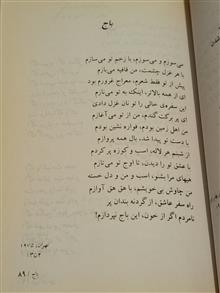 باج
می‌سوزم و می‌سوزم، با زخم تو می‌سازم
با هر غزل چشمت، من قافیه می‌بازم
پیش از تو فقط شعرم، معراج غرورم بود
ای از همه بالاتر، اینک به تو می‌نازم
این سفره‌ی خالی را تو نان غزل دادی
ای پر برکت گندم، من از تو می‌آغازم
من اهل زمین بودم، فواره نشین بودم
با دست تو پیدا شد، بال همه پروازم
از شبنم هر لاله، اسب و کوزه پر کردم
با عشق تو را دیدن، تا اوج تو می‌تازم
هیهای مرا بشنو، اسب و من و دل خسته
من چاووش بی‌خویشم، با هق هق آوازم
راه سفر عاشق، از گردنه بندان پر
نامردم اگر از خون، این باج نپردازم!
تهران، ۱۹۷۵
۱۳۵۴
باج / ۸۹